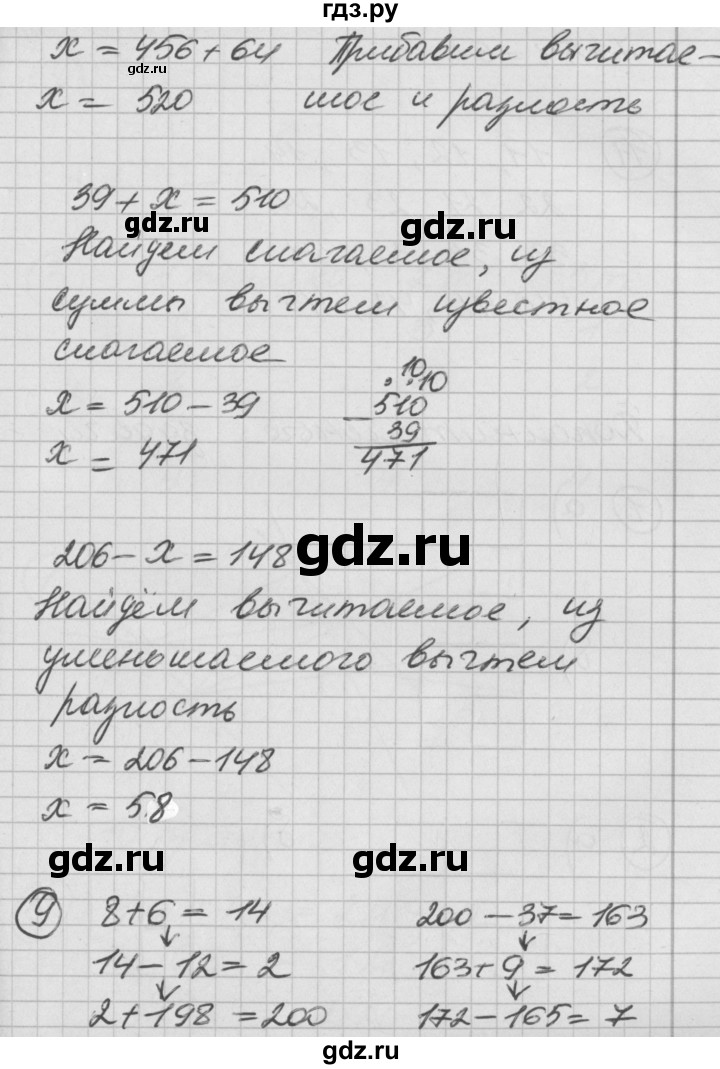 гдз.ру
x = 456 + 64 Прибавим вычитае-
gdz.ru
x = 520 мое и разность
39 + x = 510
gdz.ru gdz.ru
Найдем слагаемое, из
суммы вычтем известное
слагаемое
10
. . 10
x = 510 - 39 510
- 39
x = 471 471
206 - x = 148 gdz.ru
Найдём вычитаемое, из
уменьшаемого вычтем
разность
x = 206 - 148
x = 58
gdz.ru gdz.ru
9 8 + 6 = 14 200 - 37 = 163
14 - 12 = 2 163 + 9 = 172
2 + 198 = 200 172 - 165 = 7
gdz.ru